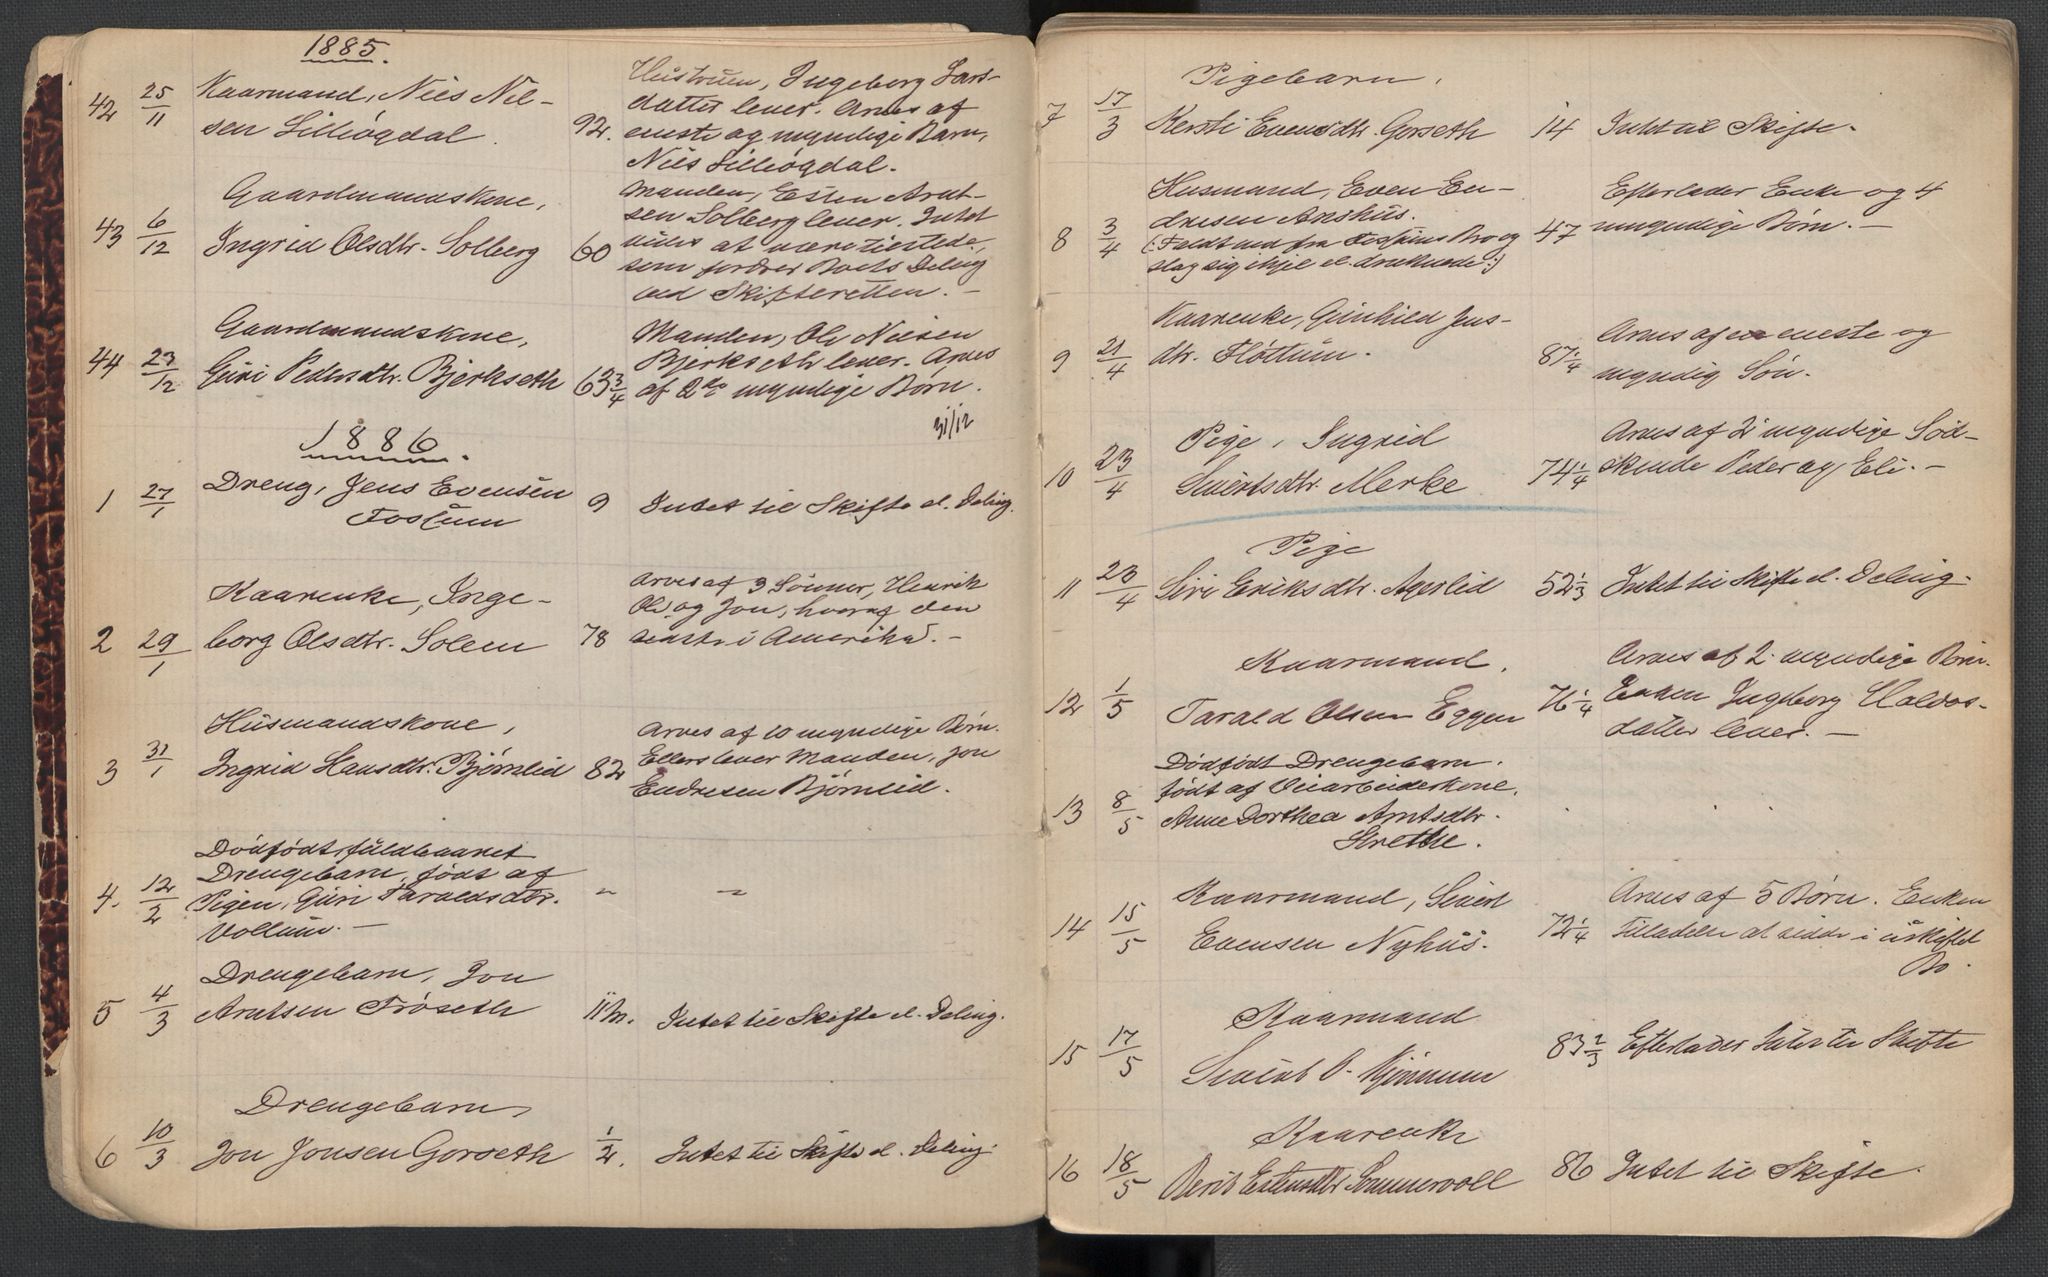 1885.
42 25/11 Kaarmand, Niels Niel-
sen Lilliøgdal. 92.
Hustruen, Ingeborg Lars-
datter lever. Arves af
eneste og myndige Barn,
Niels Lilliøgdal.
43 6/12 Gaardmandskone,
Ingrid Olsdtr. Solberg 60
Manden, Esten Arnt-
sen Solberg lever. Intet
vides at være tilstede,
som fordrer Boets Deling
ved Skifteretten. —
44 23/12 Gaardmandskone,
Guri Pedersdtr. Bjerkseth 63 3/4
Manden, Ole Nilsen
Bjerkseth lever. Arves
af 2de myndige Børn.
31/12
1886.
1 27/1 Dreng, Jens Evensen
Fossum 9 Intet til Skifte el. Deling.
2 29/1 Kaarenke, Inge-
borg Olsdtr. Solem 78
Arves af 3 Sønner, Henrik
Ole og Jon, hvoraf den
sidste i Amerika. —
3 31/1 Husmandskone,
Ingrid Hansdtr. Bjørnlid 82
Arves af 10 myndige Børn.
Ellers lever Manden, Jon
Endresen Bjørnlid.
4. 12/2 Dødfødt fuldbaaret
Drengebarn, født af
Pigen, Guri Taraldsdtr.
Vollum. —
" "
5 4/3 Drengebarn, Jon
Arntsen Frøseth 11 M. Intet til Skifte el. Deling.
6 10/3 Drengebarn,
Jon Jonsen Gorseth 1/2. Intet til Skifte el. Deling.
7 17/3 Pigebarn,
Kersti Evensdtr. Gorseth 14 Intet til Skifte.
8 3/4 Husmand, Even En-
dresen Aashus.
(: Faldt ned fra Bro og
slog sig ihjel el. druknede :) 47
Efterlader Enke og 4
umyndige Børn. —
9 21/4 Kaarenke, Gunhild Jens-
dtr. Fløttum. 87 1/4
Arves af en eneste og
myndig Søn.
10 23/4 Pige, Ingrid
Sivertsdtr. Merke 74 1/4
Arves af 2 myndige Sød-
skende Peder og Eli. —
11 23/4 Pige
Siri Eriksdtr. Agerlid 52 1/3 Intet til Skifte el. Deling.
12 1/5 Kaarmand,
Tarald Olsen Eggen 76 1/4
Arves af 2 myndige Børn.
Enken Ingeborg Haldos-
datter lever. —
13 8/5 Dødfødt Drengebarn.
født af Veiarbeiderkone,
Anne Dorthea Arntsdtr.
Grethe.
14 15/5 Kaarmand, Sivert
Evensen Nyhus. 72 1/4
Arves af 5 Børn. Enken
Tilladelse at sidde i uskiftet
Bo.
15 17/5 Kaarmand
O. Kjønnum 83 2/3 Efterlader Intet til Skifte
16 18/5 Kaarenke
Berit Estensdtr Sommervoll 86 Intet til Skifte.